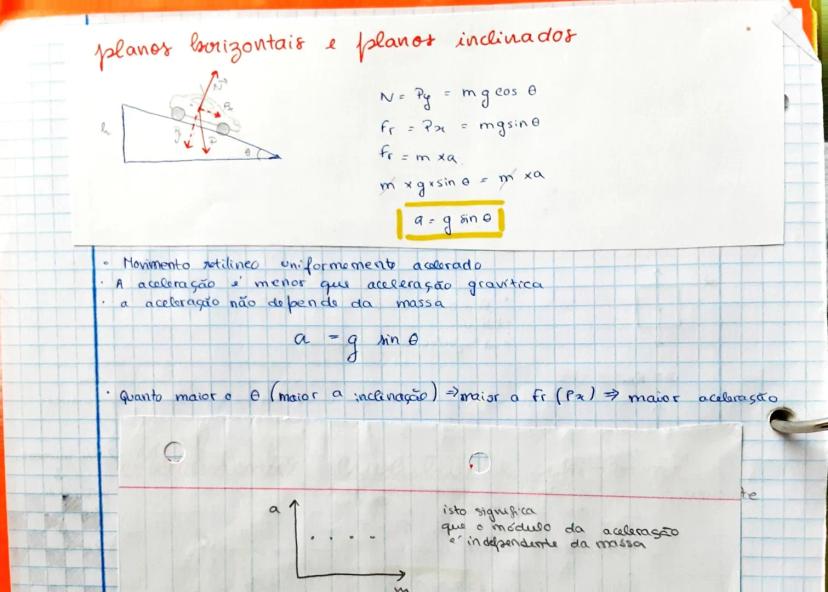 planos horizontais e planos inclinados
N
h
θ
N = Py = mg cos θ
Fr = Px = mg sin θ
Fr = m x a
m x g x sin θ = m x a
a = g sin θ
• Movimento retilíneo uniformemente acelerado
• A aceleração é menor que aceleração gravítica
• a aceleração não depende da massa
a = g sin θ
• Quanto maior o θ (maior a inclinação) ⇒ maior a Fr (Px) ⇒ maior aceleração
te
a
isto significa
que o módulo da aceleração
é independente da massa
m